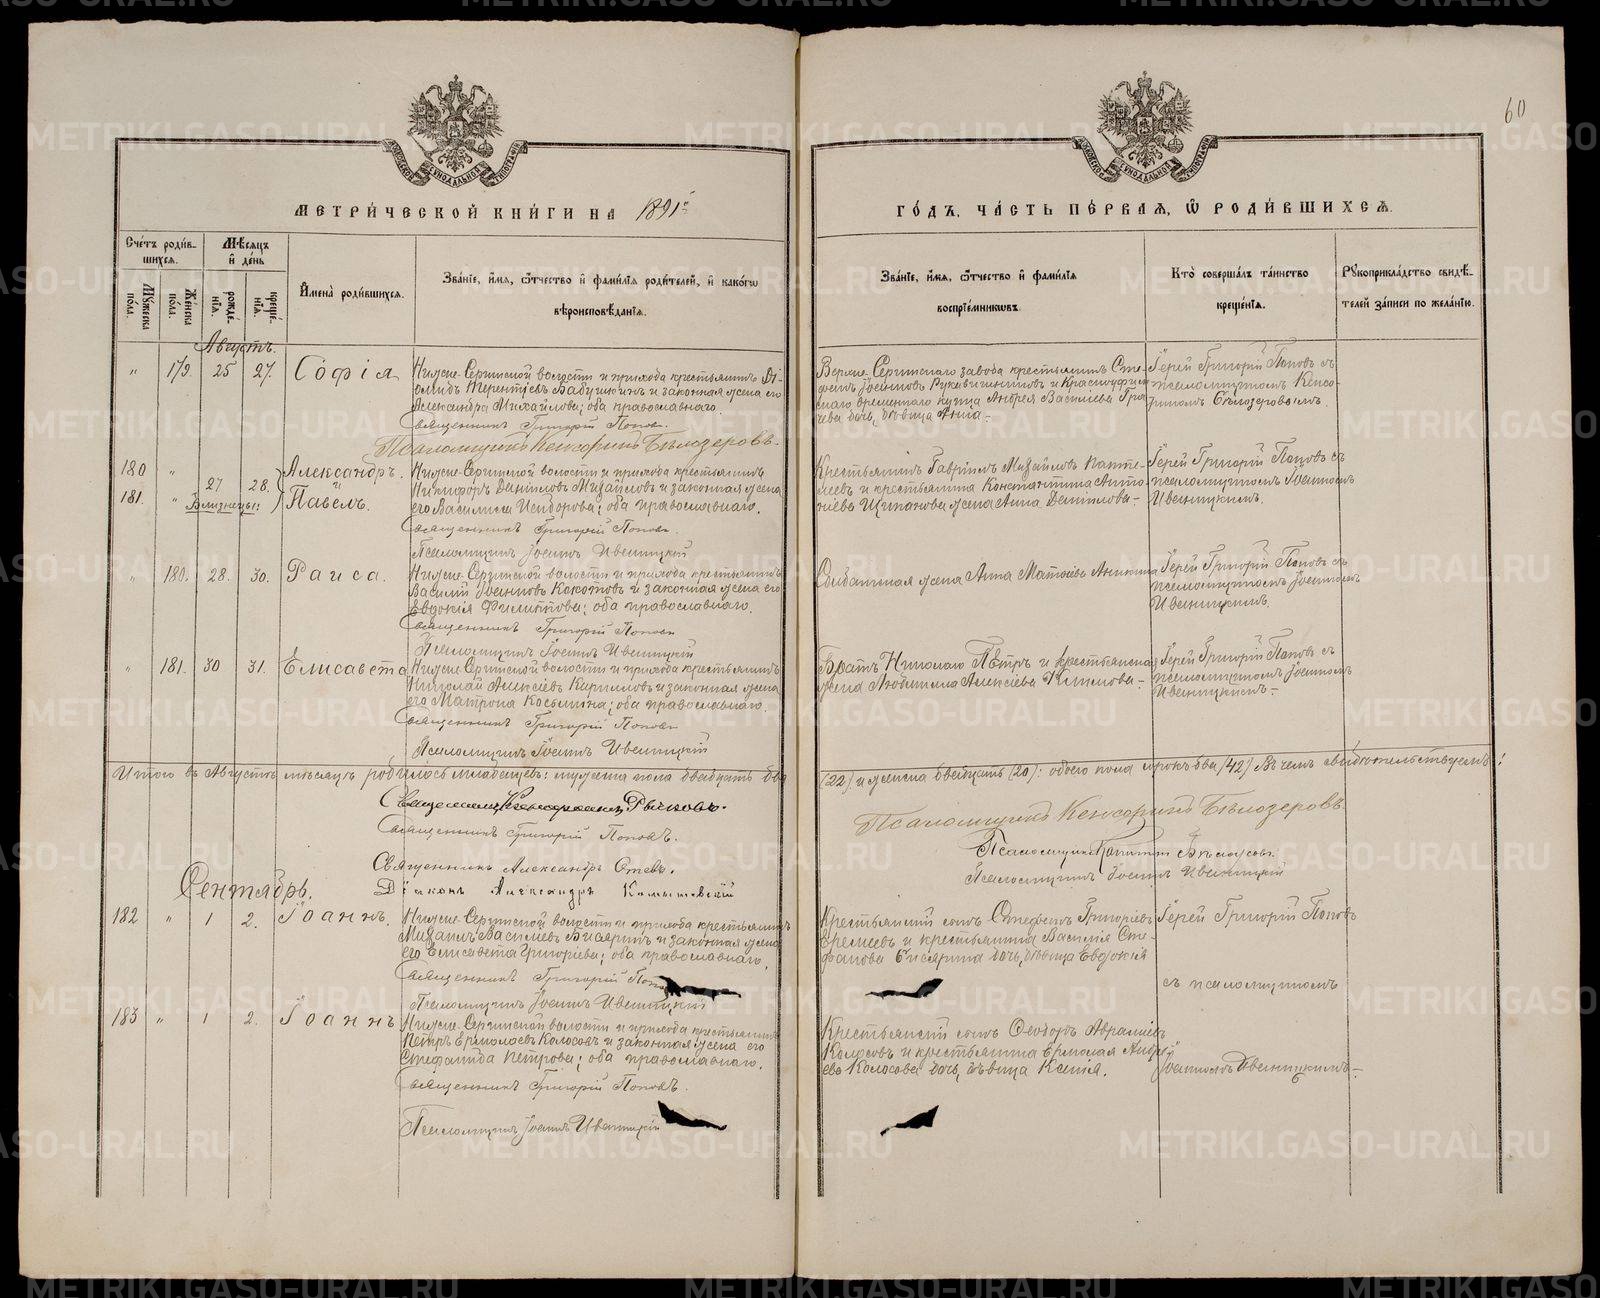 60
МЕТРИ́ЧЕСКОЙ КНИ́ГИ НА 1891й
ГО́ДЪ, ЧА́СТЬ ПЕ́РВАЯ, Ѡ҆ РОДИ́ВШИХСЯ.
Сче́тъ роди́в-
шихся.
Мѣ́сяцъ
и҆ де́нь
Му́жеска по́ла.
Же́нска по́ла.
рожде́-
нїя.
креще́-
нїя.
И҆мена̀ роди́вшихся.
Зва́нїе, и҆́мя, ѻ҆́тчество и҆ фами́лїя роди́телей, и҆ како́гѡ
вѣроисповѣ́данїя.
Зва́нїе, и҆́мя, ѻ҆́тчество и҆ фами́лїя
воспрїе́мникѡвъ.
Кто̀ соверша́лъ та́инство
креще́нїя.
Рꙋкоприкла́дство свидѣ́-
телей за́писи по жела́нїю.
Августъ.
" 179. 25 27. Софія
Нижне-Сергинской волости и прихода крестьянинъ Ді-
омидъ Терентіевъ Бабушкинъ и законная жена его
Александра Михайлова; оба православнаго.
Священникъ Григорій Поповъ.
Псаломщикъ Кенсоринъ Бѣлозеровъ.
Верхне-Сергинскаго завода крестьянинъ Сте-
фанъ Іоанновъ Рукавишниковъ и Красноуфим-
скаго временнаго купца Андрея Васильева Гра-
чева дочь, дѣвица Анна.
Іерей Григорій Поповъ съ
псаломщикомъ Кенсо-
риномъ Бѣлозеровымъ.
180 " 27 28. Александръ
и
181. " Близнецы: Павелъ.
Нижне-Сергинской волости и прихода крестьянинъ
Никифоръ Даниловъ Михайловъ и законная жена
его Василиса Исидорова; оба православнаго.
Священникъ Григорій Поповъ.
Псаломщикъ Іоаннъ Ивеницкій
Крестьянинъ Гавріилъ Михайловъ Панте-
леевъ и крестьянина Константина Анто-
ніева Щипанова жена Анна Данилова.
Іерей Григорій Поповъ съ
псаломщикомъ Іоанномъ
Ивеницкимъ.
" 180. 28. 30. Раиса.
Нижне-Сергинской волости и прихода крестьянинъ
Василій Іоанновъ Кокотовъ и законная жена его
Евдокія Филиппова; оба православнаго.
Священникъ Григорій Поповъ
Псаломщикъ Іоаннъ Ивеницкій
Солдатская жена Анна Матѳіева Аникина
Іерей Григорій Поповъ съ
псаломщикомъ Іоанномъ
Ивеницкимъ.
" 181. 30 31. Елисавета
Нижне-Сергинской волости и прихода крестьянинъ
Николай Алексіевъ Кирилловъ и законная жена
его Матрона Косьмина; оба православнаго.
Священникъ Григорій Поповъ
Псаломщикъ Іоаннъ Ивеницкій
Братъ Николаю Петръ и крестьянская
жена Любимила Алексіева
Іерей Григорій Поповъ съ
псаломщикомъ Іоанномъ
Ивеницкимъ.
Итого въ Августѣ мѣсяцѣ родилось младенцевъ: мужеска пола двадцать два
(22) и женска двадцать (20): обоего пола сорокъ два (42) Въ чемъ свидѣтельствуемъ:
Священникъ
Священникъ Григорій Поповъ.
Священникъ Александръ
Діаконъ Александръ
Псаломщикъ Кенсоринъ Бѣлозеровъ.
Псаломщикъ
Псаломщикъ Іоаннъ Ивеницкій
Сентябрь.
182 " 1 2. Іоаннъ.
Нижне-Сергинской волости и прихода крестьянинъ
Михаилъ Василіевъ Бисяринъ и законная жена
его Елисавета Григоріева; оба православнаго.
Священникъ Григорій Поповъ
Псаломщикъ Іоаннъ Ивеницкій
Крестьянскій сынъ Стефанъ Григоріевъ
Еремеевъ и крестьянина Василія Сте-
фанова Бисярина дочь, дѣвица Евдокія
Іерей Григорій Поповъ
съ псаломщикомъ
183 " 1 2. Іоаннъ
Нижне-Сергинской волости и прихода крестьянинъ
Петръ Ермолаевъ Колосовъ и законная жена его
Стефанида Петрова; оба православнаго.
Священникъ Григорій Поповъ.
Псаломщикъ Іоаннъ Ивеницкій
Крестьянскій сынъ Ѳеодоръ Авраміевъ
Колосовъ и крестьянина Ермолая Андре-
ева Колосова дочь, дѣвица Ксенія.
Іоанномъ Ивеницкимъ.
METRIKI.GASO-URAL.RU